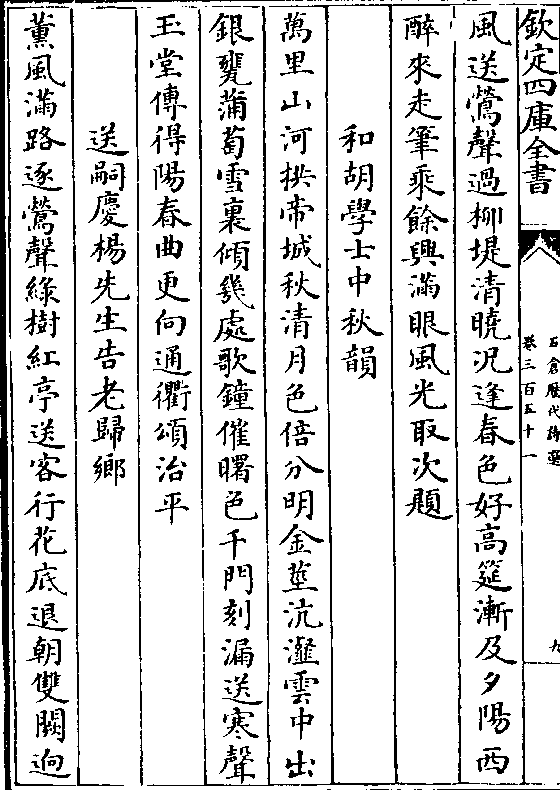 欽定四庫全書
石倉歷代詩選
卷三百五十一
九
風送鶯聲過柳堤清曉況逢春色好高筵漸及夕陽西
醉來走筆乘餘興滿眼風光取次題
和胡學士中秋韻
萬里山河拱帝城秋清月色倍分明金莖沆瀣雲中出
銀甕蒲萄雪裏傾幾處歌鐘催曙色千門刻漏送寒聲
玉堂傳得陽春曲更向通衢頌治平
送嗣慶楊先生告老歸鄉
薰風滿路逐鶯聲綠樹紅亭送客行花底退朝雙闕迥